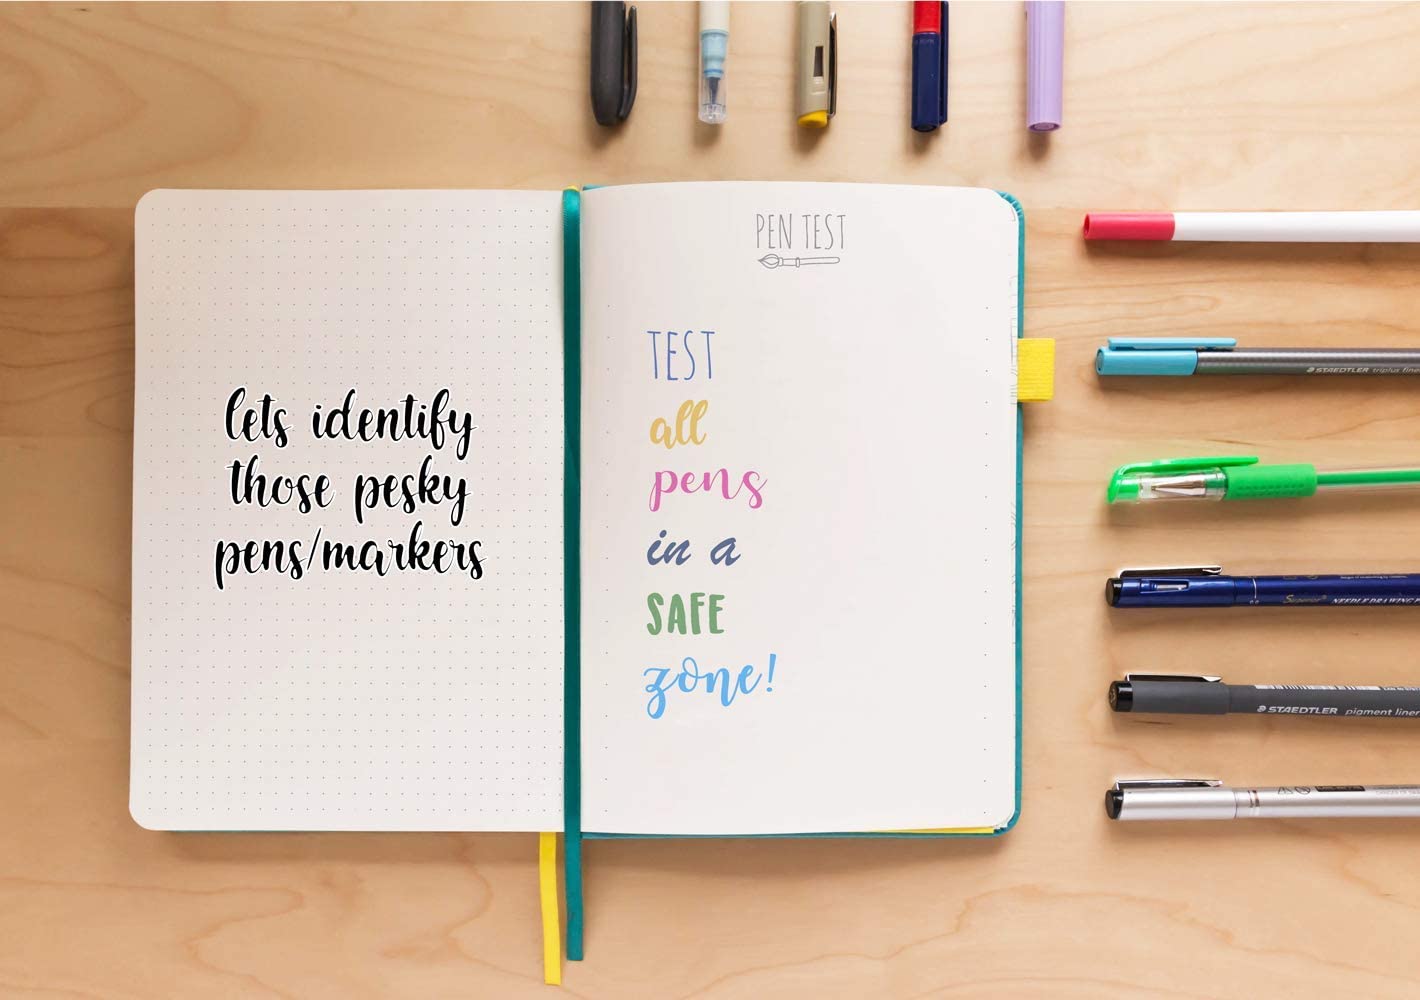 lets identify
those pesky
pens/markers
PEN TEST
TEST
all
pens
in a
SAFE
zone!
STAEDTLER triplus fine
Superior NEEDLE DRAWING P
STAEDTLER pigment liner